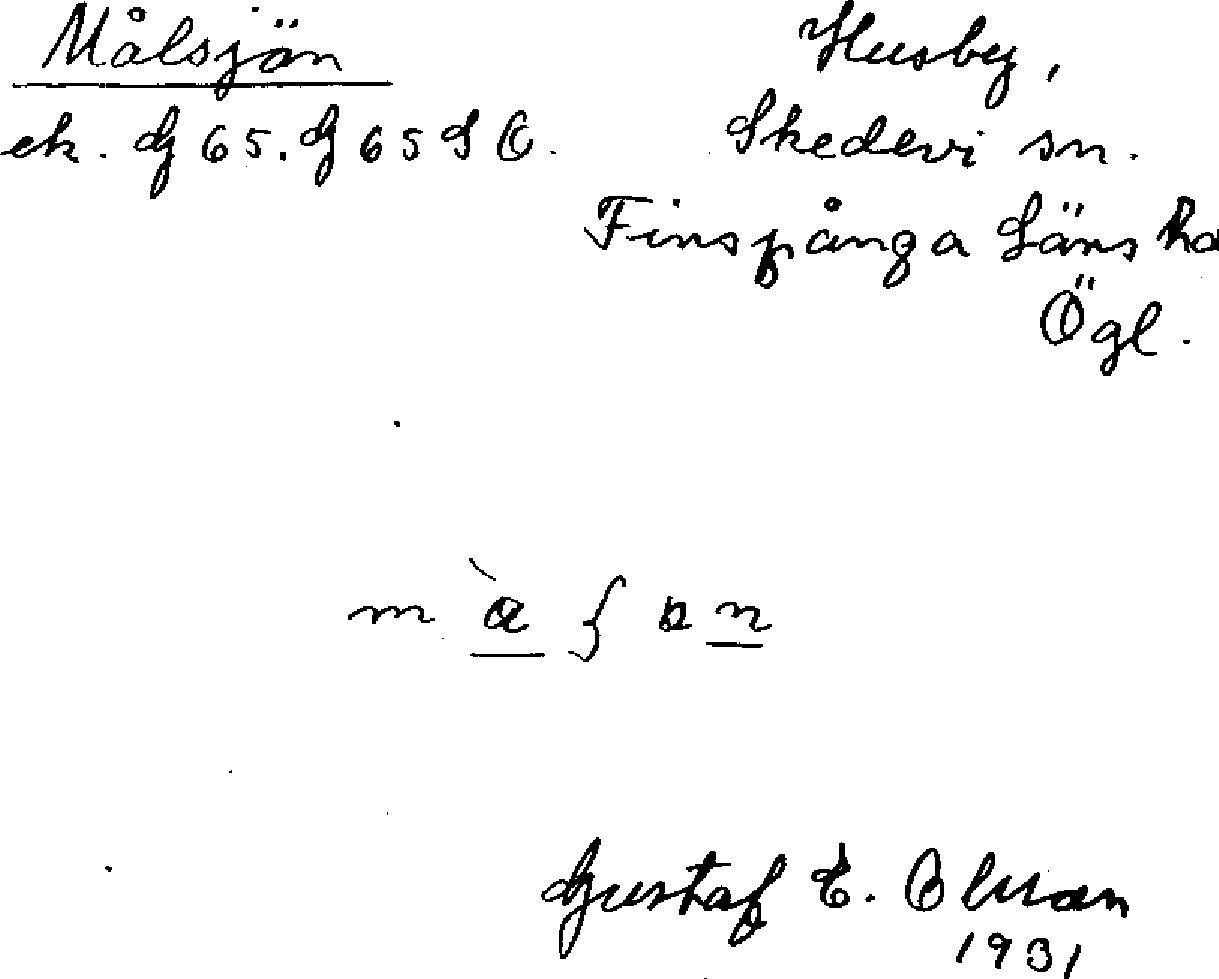 Målsjön
ek. G 65. G 65 S O.
Husby,
Skedevi sn.
Finspånga Läns hd
Ögl.
Gustaf E.
1931